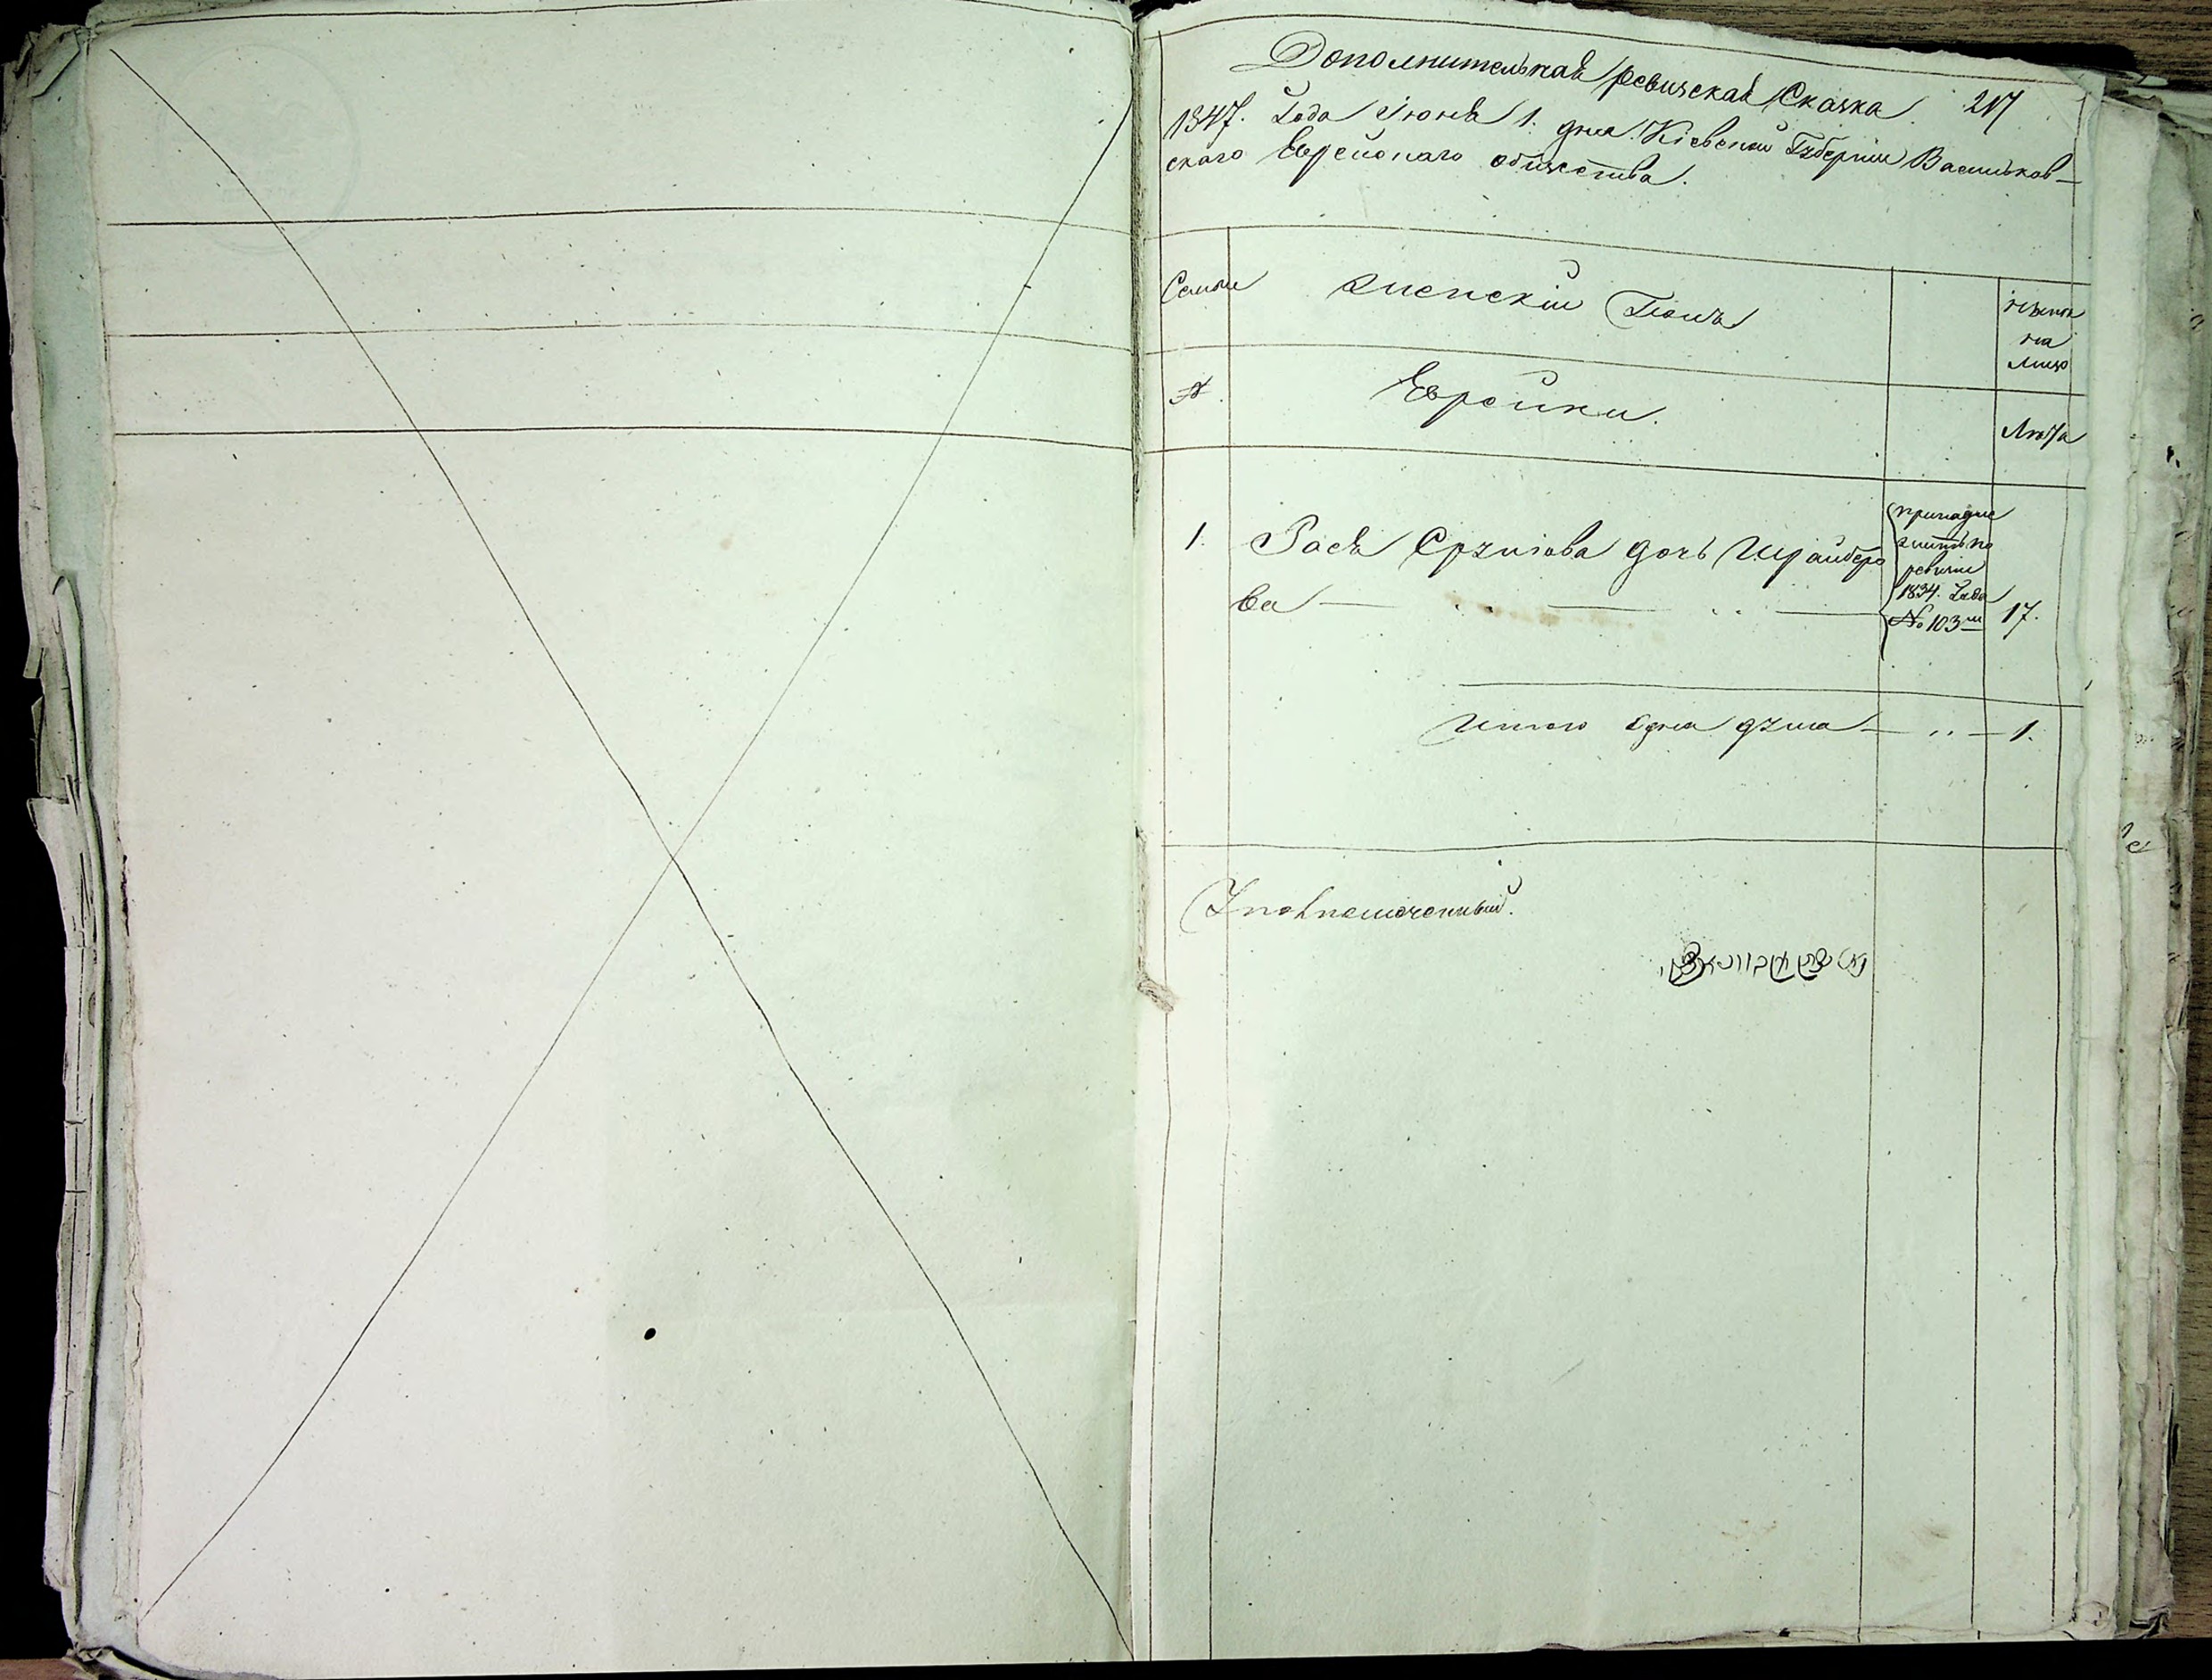 Дополнительная ревизская Сказка. 217
1847. Года Июня 1. дня. Кіевской Губерніи Васильков-
скаго Еврейскаго общества.
Семьи
женскій Полъ
нынѣ
на
лицо
№.
Еврейки.
Лѣта
1. Рася Срулiова дочь Шрайберо
ва
принадле
житъ по
ревизіи
1834. Года
№ 103м
17.
Итого одна душа 1.
Уполномоченный.